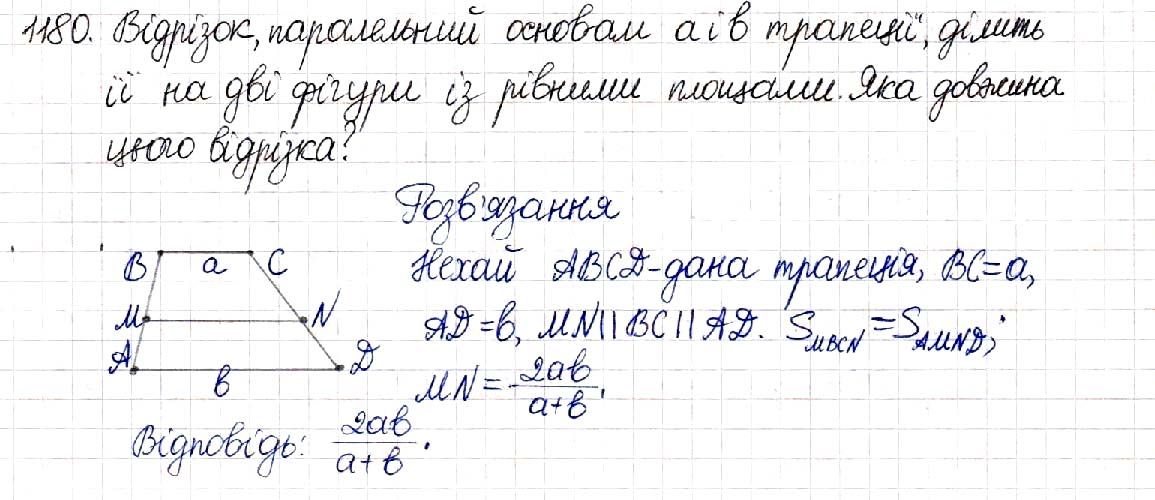 1180. Відрізок, паралельний основам а і в трапеції, ділить
її на дві фігури із рівними площами. Яка довжина
цього відрізка?
Розв'язання
B a C
Нехай ABCD-дана трапеція, BC=a,
M N
AD=в, MN||BC||AD. S_MBCN=S_AMND;
A D
в
MN=2ав/а+в.
Відповідь: 2ав/а+в.